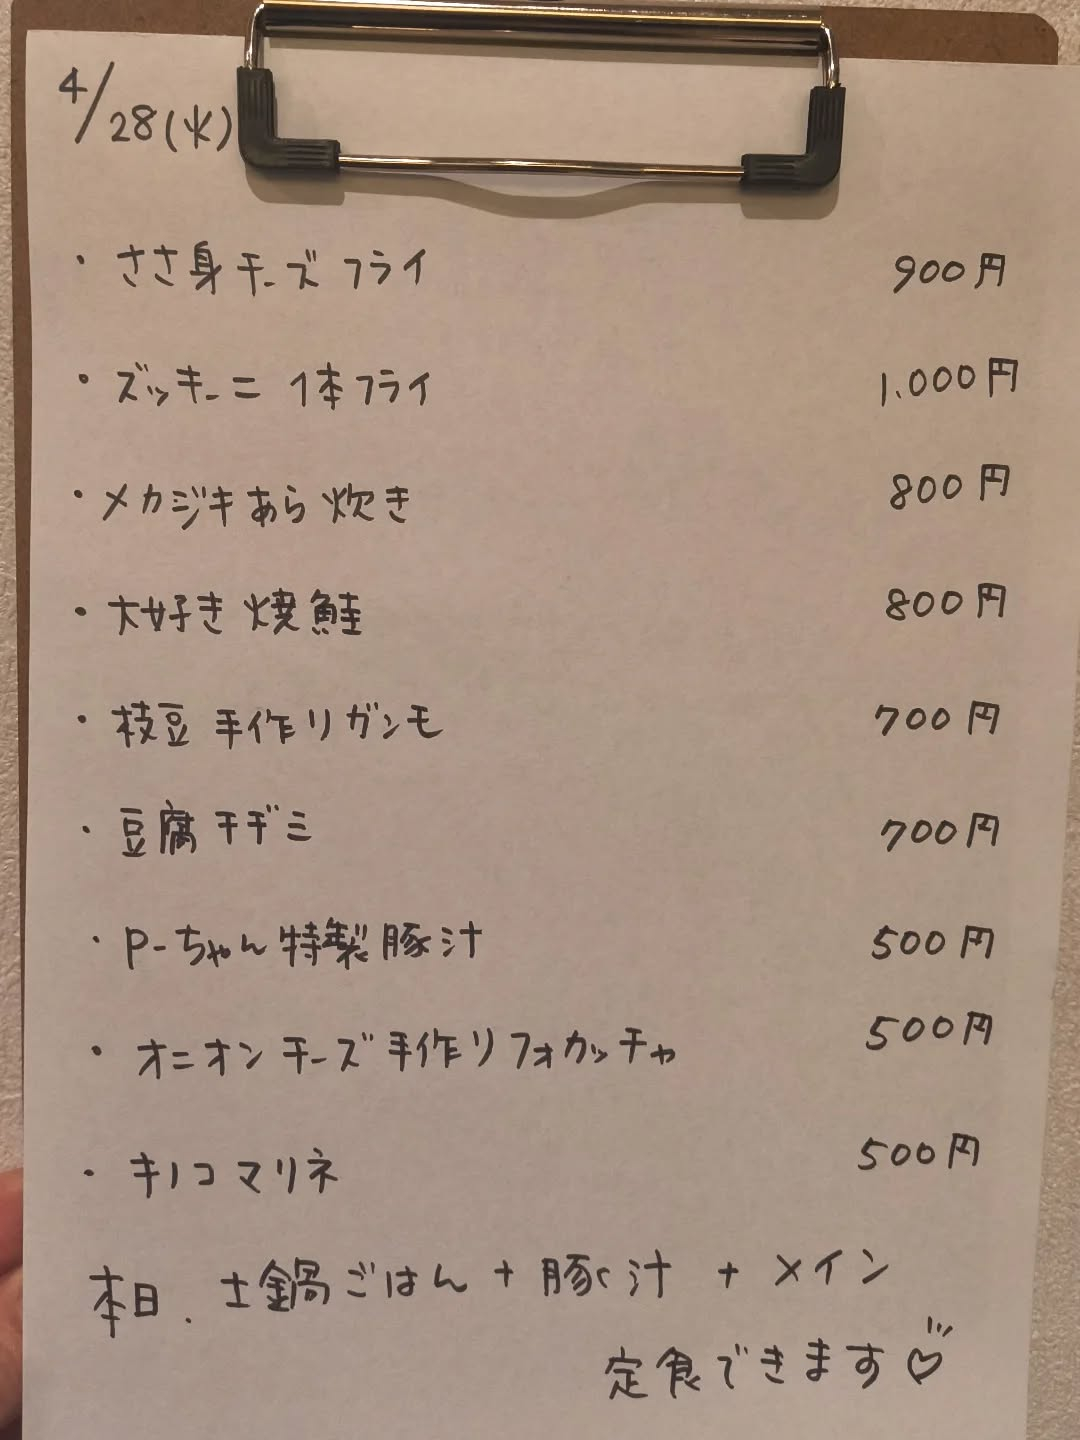 4/28(火)
・ささ身チーズフライ 900円
・ズッキーニ 1本フライ 1.000円
・メカジキあら炊き 800円
・大好き焼鮭 800円
・枝豆手作りガンモ 700円
・豆腐チヂミ 700円
・P-ちゃん特製豚汁 500円
・オニオンチーズ手作りフォカッチャ 500円
・キノコマリネ 500円
本日.土鍋ごはん+豚汁+メイン
定食できます♡